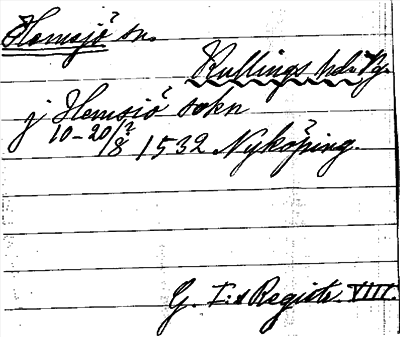 Hemsjö sn.
Kullings hd. Vg.
j Hemsiö sokn
10-20/8 ? 1532 Nyköping.
G. I:s Registr. VIII.